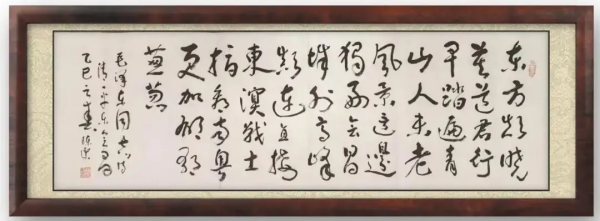 东方欲晓
莫道君行
早踏遍青
山人未老
风景這邊
独好会昌
城外高峰
颠连直接
東溟战士
指看南粤
更加郁郁
葱葱
毛泽东同志诗
清平乐会昌
乙巳之春